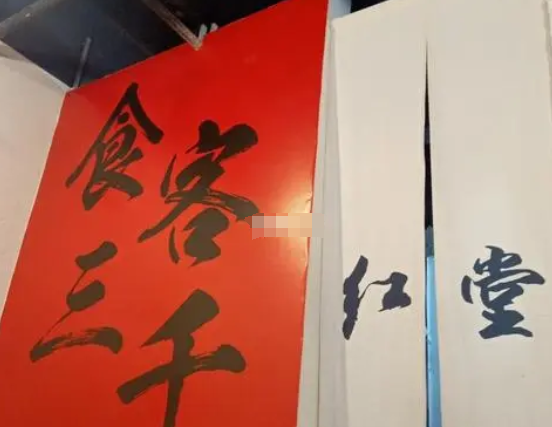 食客三千
红堂